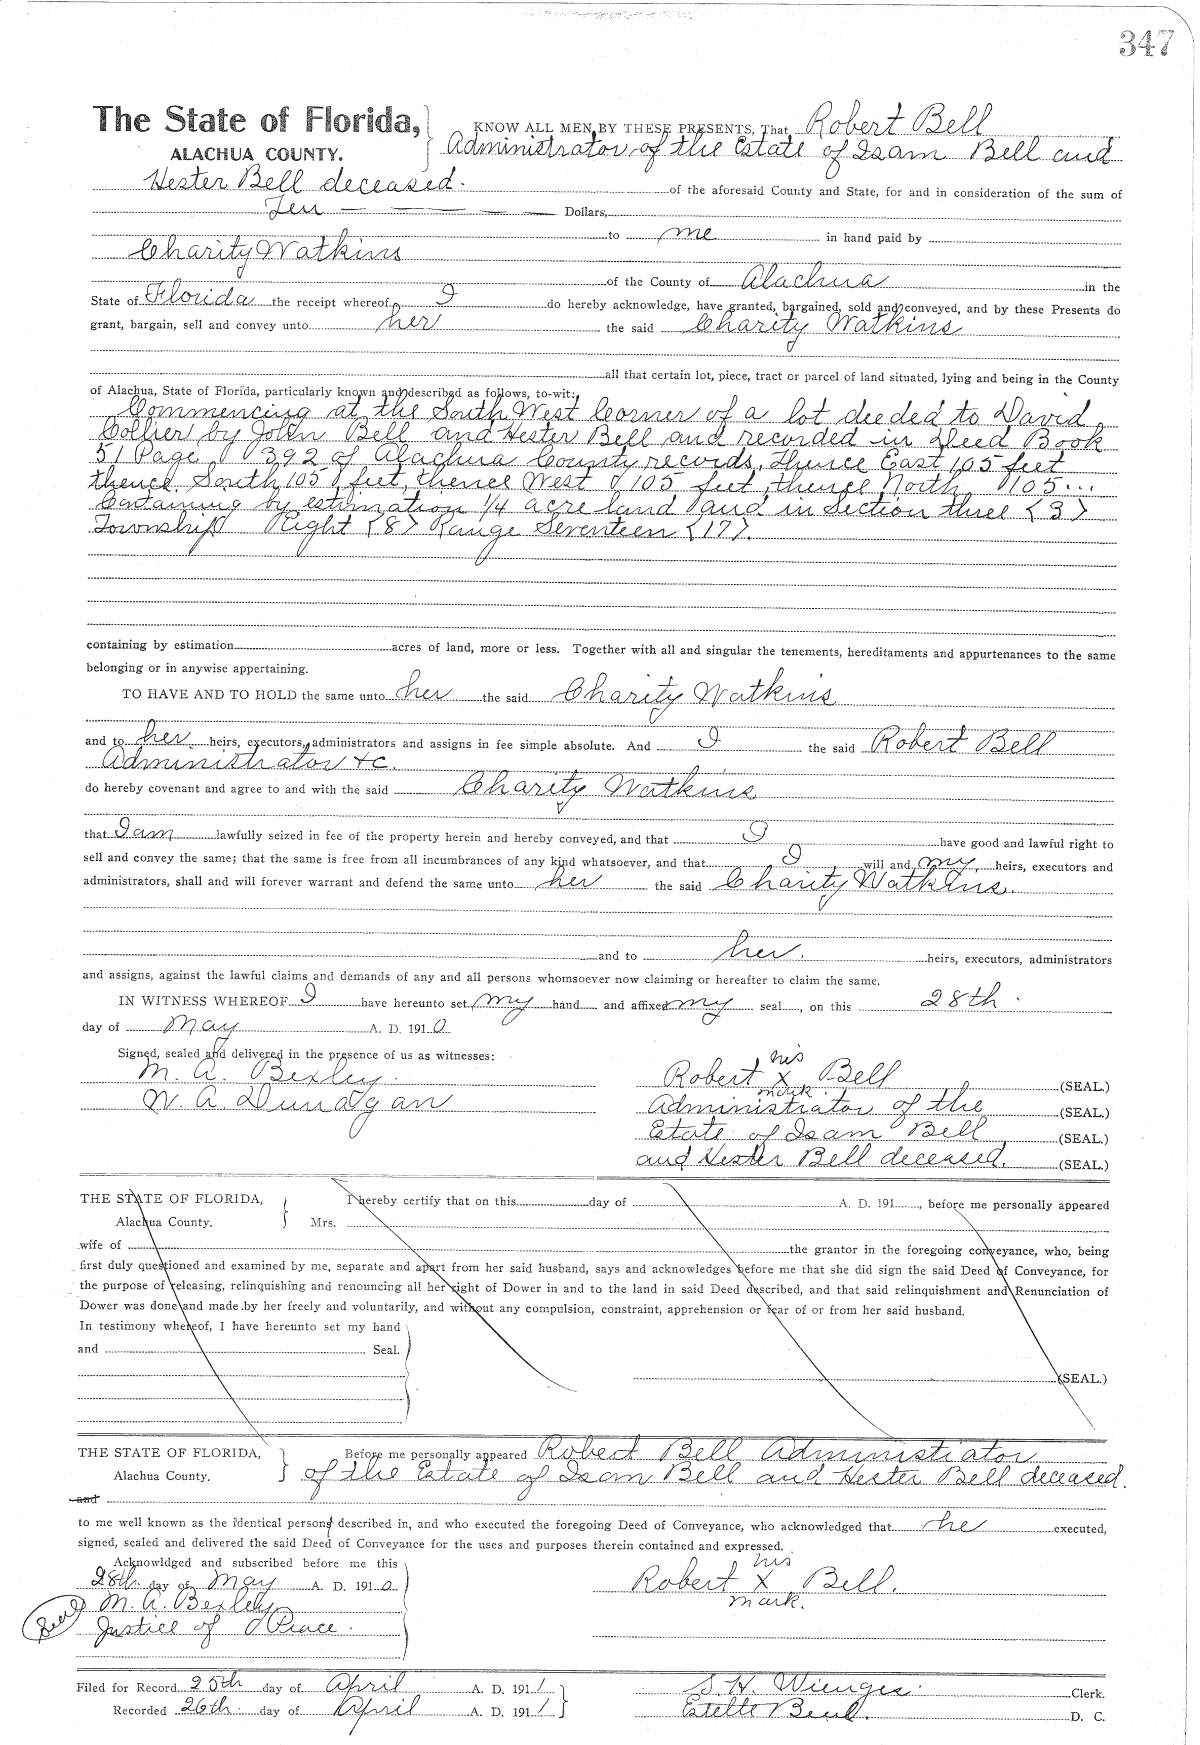 347
The State of Florida, KNOW ALL MEN BY THESE PRESENTS, That Robert Bell
ALACHUA COUNTY. Administrator of the Estate of Isam Bell and
Hester Bell deceased. of the aforesaid County and State, for and in consideration of the sum of
Ten Dollars,
to me in hand paid by
Charity Watkins
of the County of Alachua in the
State of Florida the receipt whereof I do hereby acknowledge, have granted, bargained, sold and conveyed, and by these Presents do
grant, bargain, sell and convey unto her the said Charity Watkins
all that certain lot, piece, tract or parcel of land situated, lying and being in the County
of Alachua, State of Florida, particularly known and described as follows, to-wit:
Commencing at the South West Corner of a lot deeded to David
Collier by John Bell and Hester Bell and recorded in Deed Book
51 Page 392 of Alachua County records, thence East 105 feet
thence South 105 feet, thence West 105 feet, thence North 105...
Containing by estimation 1/4 acre land and in Section three (3)
Township Eight (8) Range Seventeen (17).
containing by estimation acres of land, more or less. Together with all and singular the tenements, hereditaments and appurtenances to the same
belonging or in anywise appertaining.
TO HAVE AND TO HOLD the same unto her the said Charity Watkins
and to her heirs, executors, administrators and assigns in fee simple absolute. And I the said Robert Bell
Administrator &c.
do hereby covenant and agree to and with the said Charity Watkins
that I am lawfully seized in fee of the property herein and hereby conveyed, and that I have good and lawful right to
sell and convey the same; that the same is free from all incumbrances of any kind whatsoever, and that I will and my heirs, executors and
administrators, shall and will forever warrant and defend the same unto her the said Charity Watkins.
and to her. heirs, executors, administrators
and assigns, against the lawful claims and demands of any and all persons whomsoever now claiming or hereafter to claim the same.
IN WITNESS WHEREOF I have hereunto set my hand and affixed my seal, on this 28th.
day of May A. D. 1910
Signed, sealed and delivered in the presence of us as witnesses:
his
M. A. Bexley. Robert X Bell (SEAL.)
mark.
W. A. Dunagan Administrator of the (SEAL.)
Estate of Isam Bell (SEAL.)
and Hester Bell deceased. (SEAL.)
THE STATE OF FLORIDA, I hereby certify that on this day of A. D. 191 , before me personally appeared
Alachua County. Mrs.
wife of the grantor in the foregoing conveyance, who, being
first duly questioned and examined by me, separate and apart from her said husband, says and acknowledges before me that she did sign the said Deed of Conveyance, for
the purpose of releasing, relinquishing and renouncing all her right of Dower in and to the land in said Deed described, and that said relinquishment and Renunciation of
Dower was done and made by her freely and voluntarily, and without any compulsion, constraint, apprehension or fear of or from her said husband.
In testimony whereof, I have hereunto set my hand
and Seal.
(SEAL.)
THE STATE OF FLORIDA, Before me personally appeared Robert Bell Administrator
Alachua County. of the Estate of Isam Bell and Hester Bell deceased.
and
to me well known as the identical person described in, and who executed the foregoing Deed of Conveyance, who acknowledged that he executed,
signed, sealed and delivered the said Deed of Conveyance for the uses and purposes therein contained and expressed.
Acknowldged and subscribed before me this his
28th day of May A. D. 1910 Robert X Bell.
mark.
M. A. Bexley
Seal Justice of Peace.
Filed for Record 25th day of April A. D. 1911 S. H. Wienges. Clerk.
Recorded 26th day of April A. D. 1911 Estelle D. C.